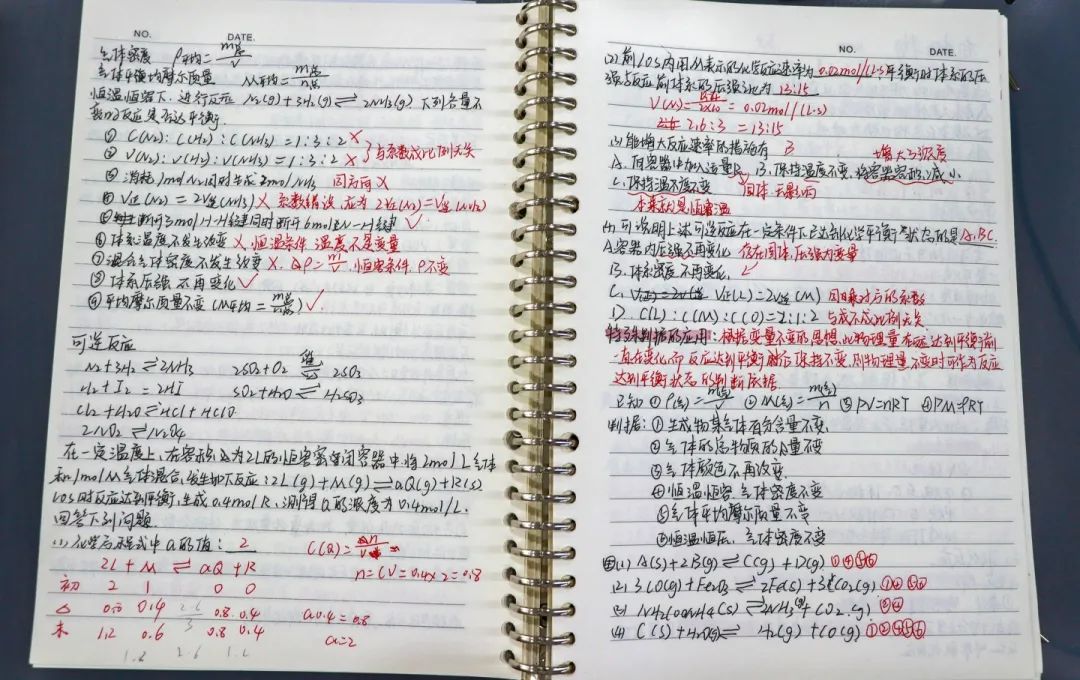 NO. DATE.
气体密度 ρ平均=m总/V
气体平衡均摩尔质量 M平均=m总/n总
恒温恒容下,进行反应 N₂(g)+3H₂(g)⇌2NH₃(g) 下列各量不
能 反应是否达平衡.
① C(N₂):C(H₂):C(NH₃)=1:3:2 X
② V(N₂):V(H₂):V(NH₃)=1:3:2 X 与系数成比例无关
③ 消耗1molN₂同时生成2molNH₃ 同方向X
④ V正(N₂)=2V逆(NH₃) X 系数错误,应为2V正(N₂)=V逆(NH₃)
⑤ 断开3molH-H键同时断开6molN-H键 ✓.
⑥ 体系温度不发生改变 X 恒温条件 温度不是变量
⑦ 混合气体密度不发生改变 X. ρ=m/V.恒容条件 ρ不变
⑧ 体系压强不再变化 ✓
⑨ 平均摩尔质量不变(M平均=m总/n总) ✓.
可逆反应
N₂+3H₂⇌2NH₃ 2SO₂+O₂⇌2SO₃
H₂+I₂=2HI SO₂+H₂O⇌H₂SO₃
Cl₂+H₂O⇌HCl+HClO
2NO₂⇌N₂O₄
在一定温度上,在容积为2L的恒容密闭容器中,将2molL气体
和1molM气体混合,发生如下反应:2L(g)+M(g)⇌aQ(g)+R(s)
10s时反应达到平衡,生成0.4molR,测得Q的浓度为0.4mol/L.
回答下列问题.
(1)化学方程式中a的值:2 C(Q)=Δn/V
2L+M⇌aQ+R n=CV=0.4×2=0.8
初 2 1 0 0
Δ 0.8 0.4 0.8 0.4 a0.4=0.8
末 1.2 0.6 0.8 0.4 a=2
NO. DATE.
(2)前10S内用M表示的化学反应速率为0.02mol/(L·s),平衡时体系的压
强与反应前体系的压强之比为13:15
V(M)= =0.02mol/(L·s)
2.6:3=13:15
(3)能增大反应速率的措施有 B 增大了浓度
A.向容器中加入适量R B.保持温度不变,将容器容积减小
C.保持温度不变 固体无影响
本来就是恒容温
(4)可说明上述可逆反应在一定条件下已达到化学平衡状态的是A.BC.
A.容器内压强不再变化 存在固体,压强为变量
B.体系密度不再变化. ✓
C. V正(L)=2V逆(M) 因乘对应的系数
D. C(L):C(M):C(Q)=2:1:2 与成不成比例无关
特殊判据的应用:根据变量不变的思想,此物理量在达到平衡前
一直在变化而反应达到平衡后保持不变,则物理量不变时可作为反应
达到平衡状态的判断依据
已知①ρ(g)=m(g)/V ②M(g)=m(g)/n ③PV=nRT ④PM=ρRT
判据:①生成物某气体百分含量不变.
②气体的总物质的量不变
③气体颜色不再改变
④恒温恒容.气体密度不变
⑤气体平均摩尔质量不变
⑥恒温恒压.气体密度不变
(1)A(s)+2B(g)⇌C(g)+D(g) ①④⑤⑥
(2)3CO(g)+Fe₂O₃⇌2Fe(s)+3CO₂(g) ①④⑤⑥
(3)NH₂COONH₄(s)⇌2NH₃(g)+CO₂(g) ②④
(4)C(s)+H₂O(g)⇌H₂(g)+CO(g) ①②④⑤⑥